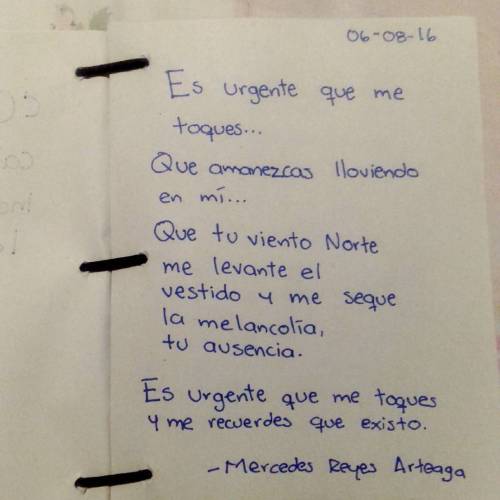 06-08-16
Es urgente que me
toques...
Que amanezcas lloviendo
en mí...
Que tu viento Norte
me levante el
vestido y me seque
la melancolía,
tu ausencia.
Es urgente que me toques
y me recuerdes que existo.
- Mercedes Reyes Arteaga